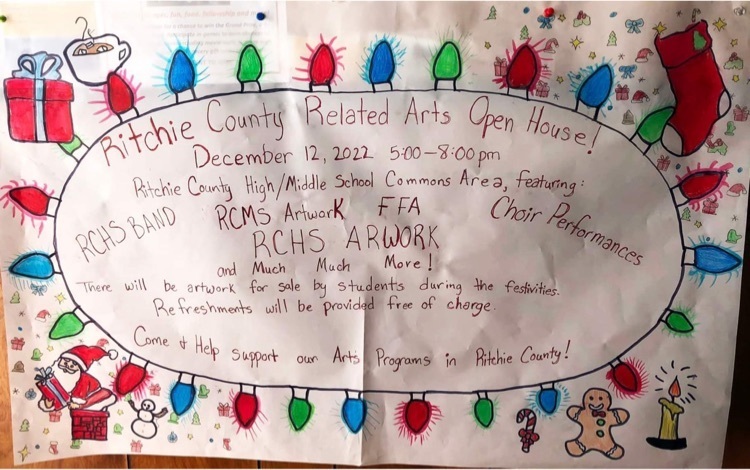 Ritchie County Related Arts Open House!
December 12, 2022 5:00-8:00pm
Ritchie County High/Middle School Commons Area, featuring:
RCHS BAND RCMS Artwork FFA Choir Performances
RCHS ARWORK
and Much Much More!
There will be artwork for sale by students during the festivities.
Refreshments will be provided free of charge.
Come & Help support our Arts Programs in Ritchie County!